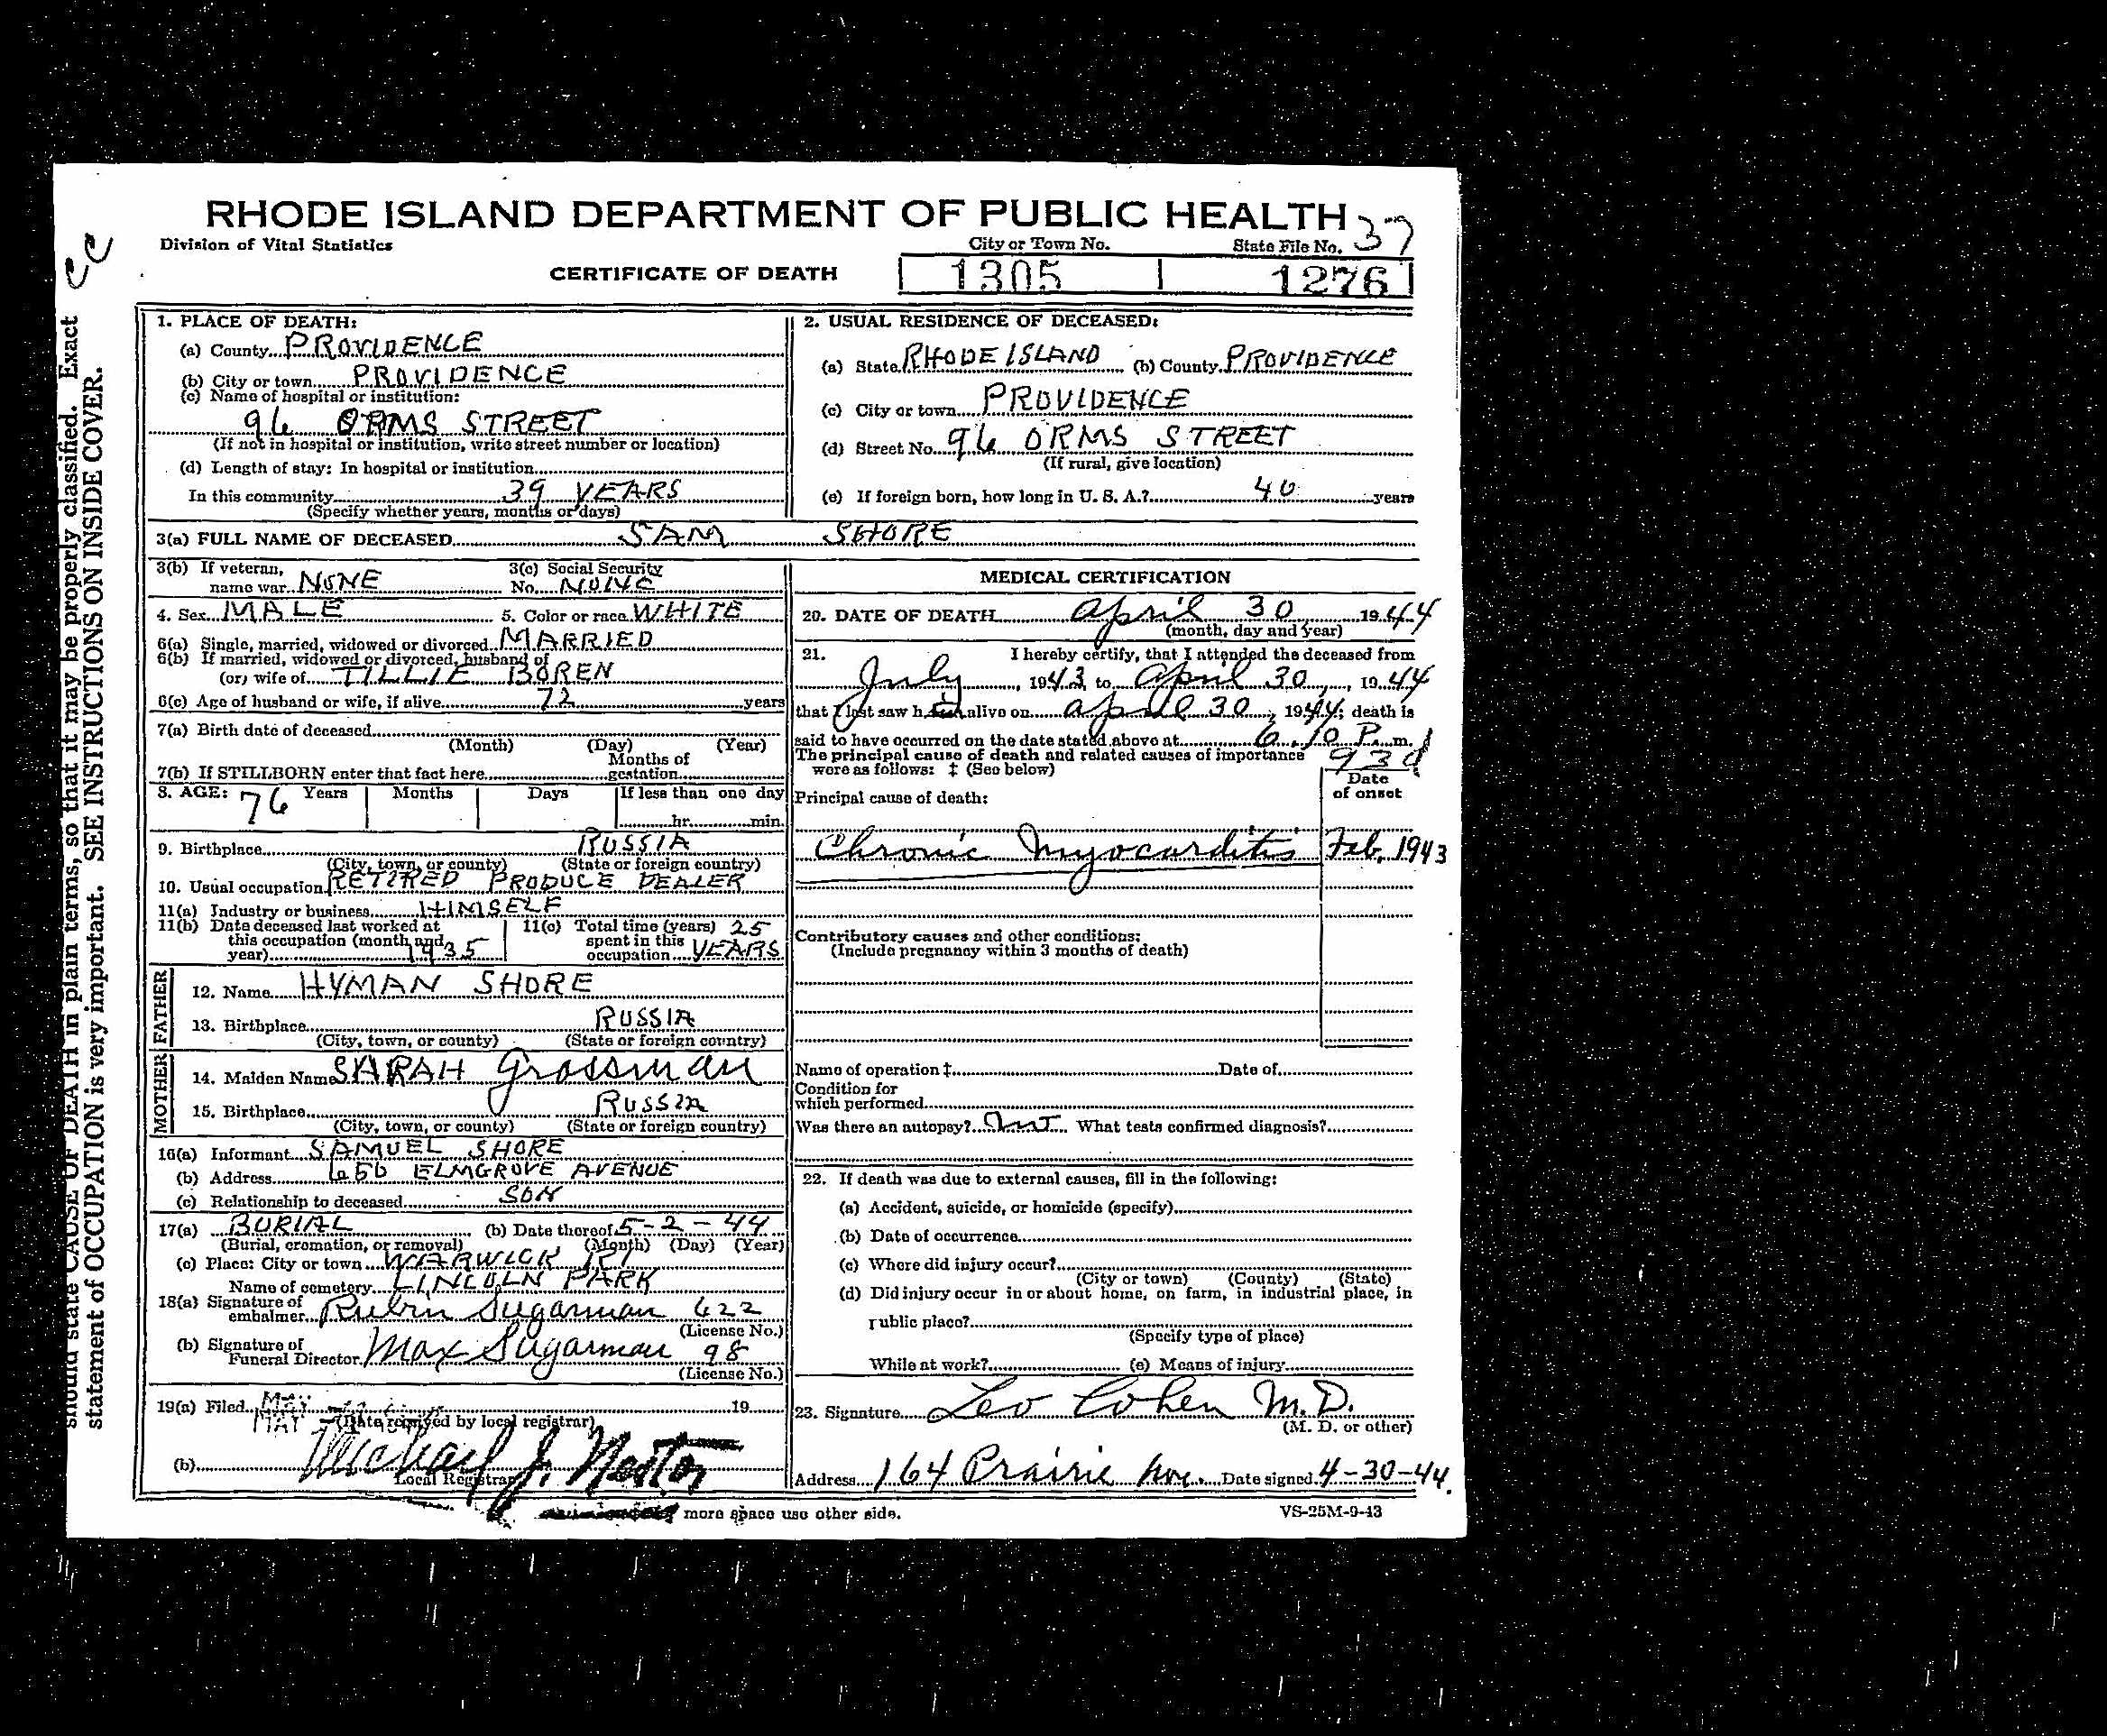 RHODE ISLAND DEPARTMENT OF PUBLIC HEALTH 37
Division of Vital Statistics
City or Town No. State File No.
CERTIFICATE OF DEATH 1305 1276
CC
should state CAUSE OF DEATH in plain terms, so that it may be properly classified. Exact
statement of OCCUPATION is very important. SEE INSTRUCTIONS ON INSIDE COVER.
1. PLACE OF DEATH:
(a) County PROVIDENCE
(b) City or town PROVIDENCE
(c) Name of hospital or institution:
96 ORMS STREET
(If not in hospital or institution, write street number or location)
(d) Length of stay: In hospital or institution
In this community 39 YEARS
(Specify whether years, months or days)
2. USUAL RESIDENCE OF DECEASED:
(a) State RHODE ISLAND (b) County PROVIDENCE
(c) City or town PROVIDENCE
(d) Street No. 96 ORMS STREET
(If rural, give location)
(e) If foreign born, how long in U. S. A.? 40 years
3(a) FULL NAME OF DECEASED SAM SHORE
3(b) If veteran, 3(c) Social Security
name war NONE No. NONE
4. Sex MALE 5. Color or race WHITE
6(a) Single, married, widowed or divorced MARRIED
6(b) If married, widowed or divorced, husband of
(or) wife of TILLIE BOREN
6(c) Age of husband or wife, if alive 72 years
7(a) Birth date of deceased
(Month) (Day) (Year)
Months of
7(b) If STILLBORN enter that fact here gestation
8. AGE: 76 Years Months Days If less than one day
hr. min.
9. Birthplace RUSSIA
(City, town, or county) (State or foreign country)
10. Usual occupation RETIRED PRODUCE DEALER
11(a) Industry or business HIMSELF
11(b) Date deceased last worked at this occupation (month and year) 1935
11(c) Total time (years) spent in this occupation 25 YEARS
FATHER
12. Name HYMAN SHORE
13. Birthplace RUSSIA
(City, town, or county) (State or foreign country)
MOTHER
14. Maiden Name SARAH Grossman
15. Birthplace RUSSIA
(City, town, or county) (State or foreign country)
16(a) Informant SAMUEL SHORE
(b) Address 656 ELMGROVE AVENUE
(c) Relationship to deceased SON
17(a) BURIAL (b) Date thereof 5-2-44
(Burial, cremation, or removal) (Month) (Day) (Year)
(c) Place: City or town WARWICK RI
Name of cemetery LINCOLN PARK
18(a) Signature of
embalmer Rubin Sugarman 622
(License No.)
(b) Signature of
Funeral Director Max Sugarman 98
(License No.)
19(a) Filed MAY 19
(Date received by local registrar)
(b) Michael J. Nestor
Local Registrar
MEDICAL CERTIFICATION
20. DATE OF DEATH April 30 1944
(month, day and year)
21. I hereby certify, that I attended the deceased from
July, 1943, to April 30, 1944
that I last saw him alive on April 30, 1944; death is
said to have occurred on the date stated above at 6.10 P. m.
The principal cause of death and related causes of importance
were as follows: ‡ (See below)
93d
Date
of onset
Principal cause of death:
Chronic Myocarditis Feb, 1943
Contributory causes and other conditions:
(Include pregnancy within 3 months of death)
Name of operation ‡ Date of
Condition for
which performed
Was there an autopsy? What tests confirmed diagnosis?
22. If death was due to external causes, fill in the following:
(a) Accident, suicide, or homicide (specify)
(b) Date of occurrence
(c) Where did injury occur?
(City or town) (County) (State)
(d) Did injury occur in or about home, on farm, in industrial place, in
public place?
(Specify type of place)
While at work? (e) Means of injury
23. Signature Leo Cohen M.D.
(M. D. or other)
Address 164 Prairie Ave. Date signed 4-30-44.
more space use other side.
VS-25M-9-43